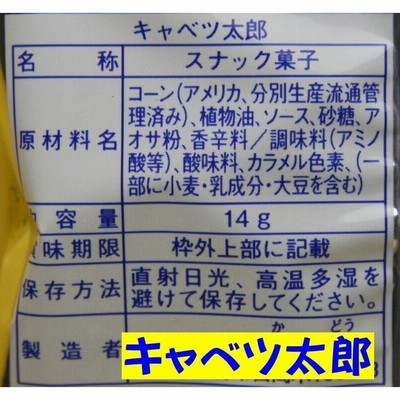 キャベツ太郎
名称 スナック菓子
原材料名
コーン(アメリカ、分別生産流通管
理済み)、植物油、ソース、砂糖、ア
オサ粉、香辛料／調味料(アミノ
酸等)、酸味料、カラメル色素、(一
部に小麦・乳成分・大豆を含む)
内容量 14g
賞味期限 枠外上部に記載
保存方法
直射日光、高温多湿を
避けて保存してください。
か どう
製造者
キャベツ太郎